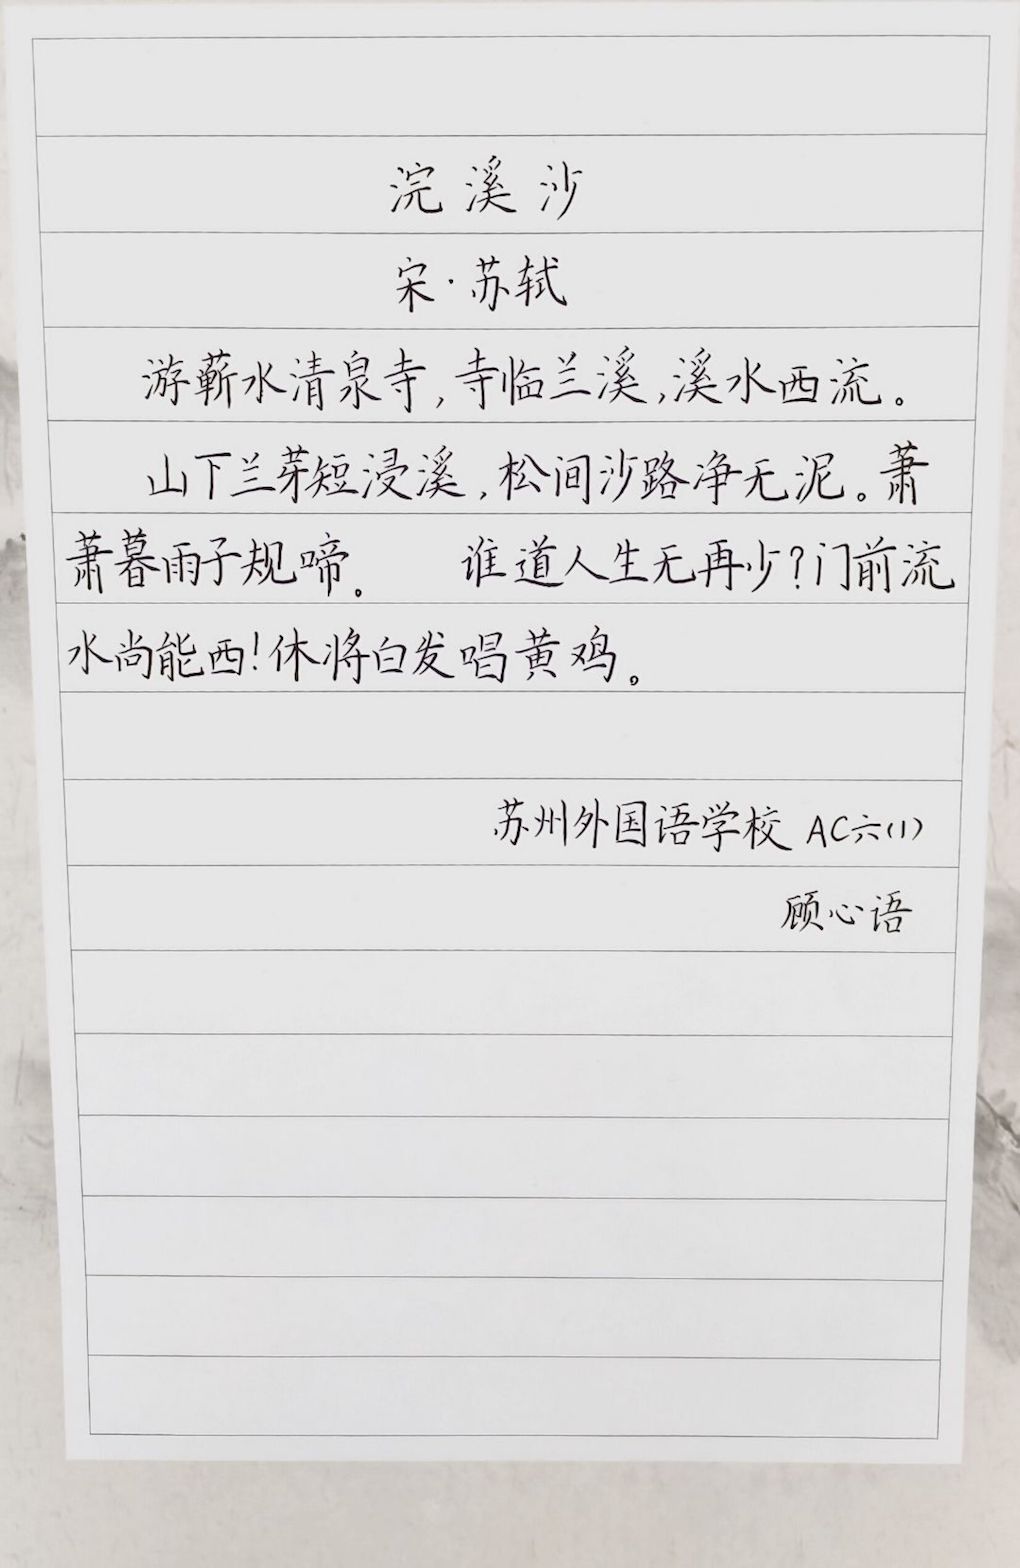 浣溪沙
宋·苏轼
游蕲水清泉寺,寺临兰溪,溪水西流。
山下兰芽短浸溪,松间沙路净无泥。萧
萧暮雨子规啼。 谁道人生无再少?门前流
水尚能西!休将白发唱黄鸡。
苏州外国语学校 AC六(1)
顾心语